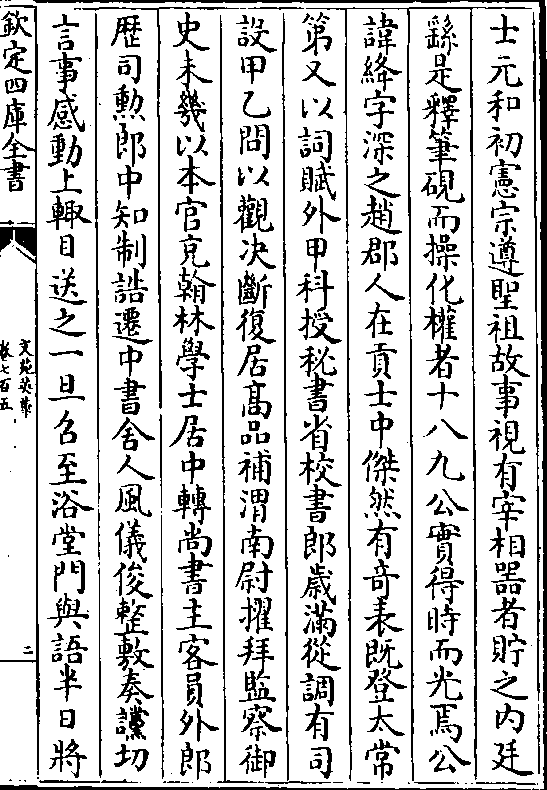 士元和初憲宗遵聖祖故事視有宰相器者貯之内廷
繇是釋筆硯而操化權者十八九公實得時而光焉公
諱絳字深之趙郡人在貢士中傑然有竒表既登太常
第又以詞賦升甲科授秘書省校書郎歳滿從調有司
設甲乙問以觀决斷復居髙品補渭南尉擢拜監察御
史未幾以本官充翰林學士居中轉尚書主客員外郎
歴司勲郎中知制誥遷中書舍人風儀俊整敷奏讜切
言事感動上輙目送之一旦召至浴堂門與語半日將
欽定四庫全書
文苑英華
卷七百五
二